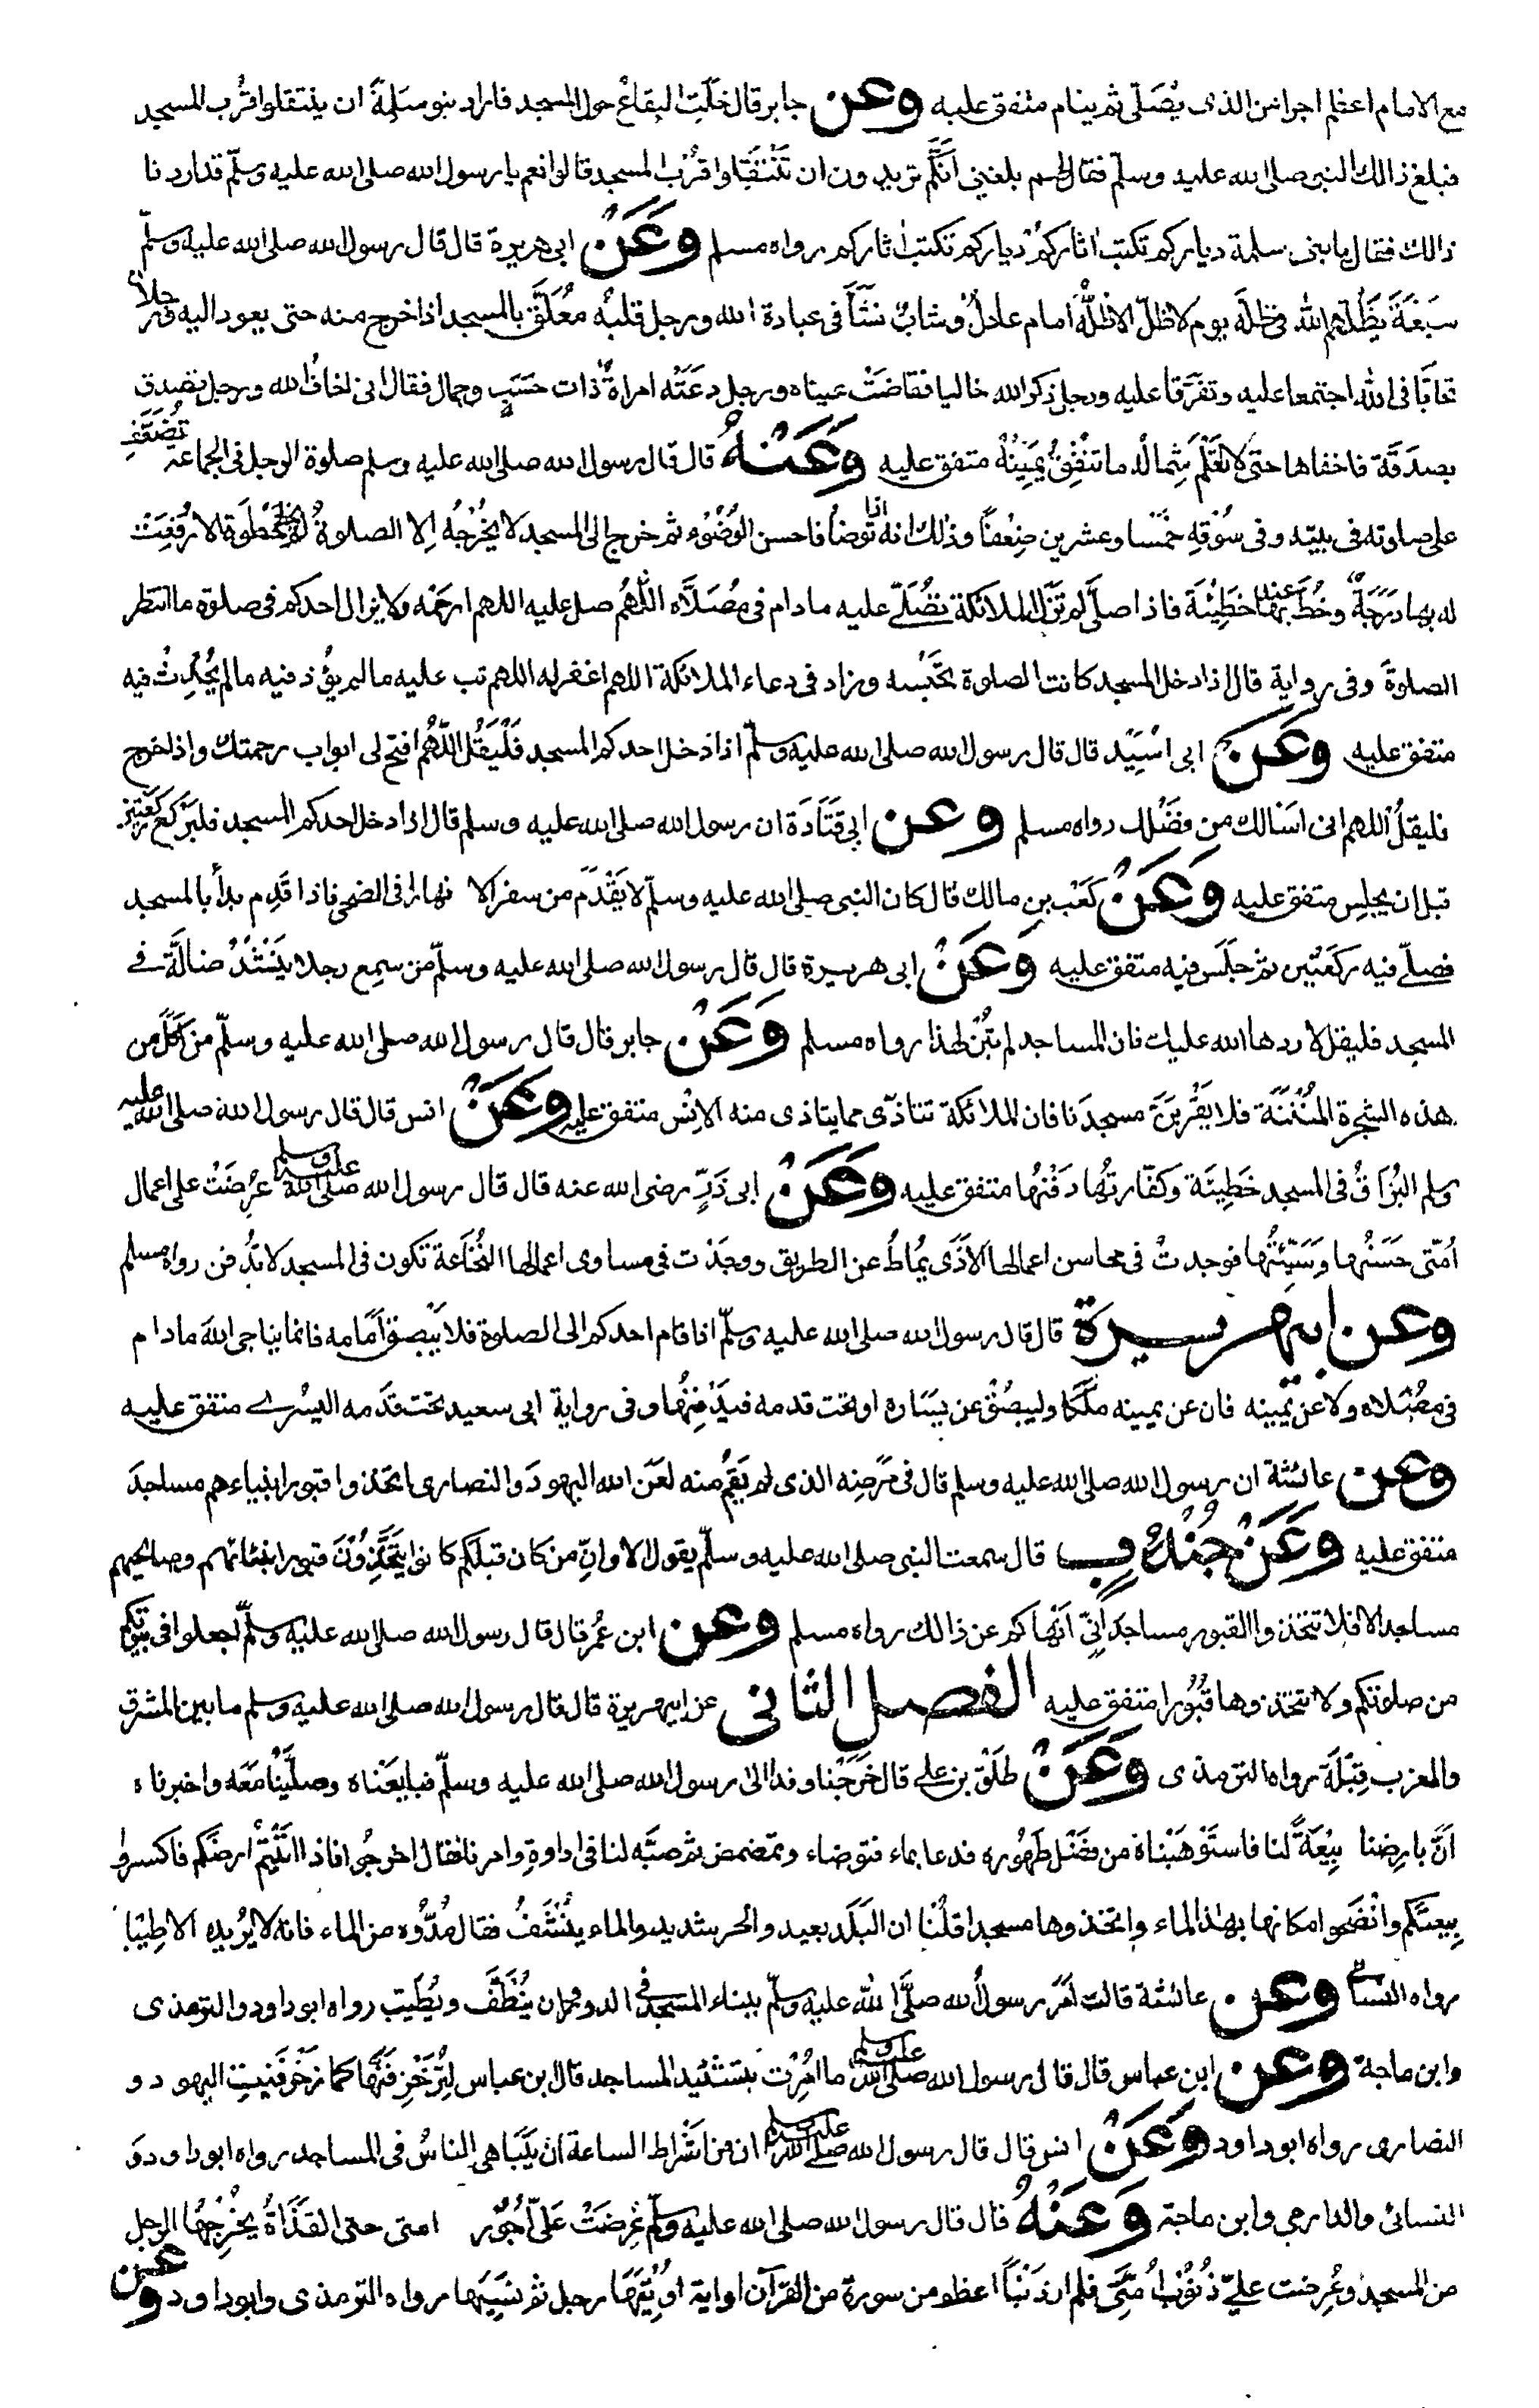 مع الامام اعظم اجرا من الذى يُصَلّى ثم ينام متفق عليه وعن جابر قال خَلَتِ البقاعُ حول المسجد فاراد بنو سَلِمَةَ ان ينتقلوا قُرب المسجد
فبلغ ذالك النبى صلى الله عليه وسلّم فقال لهم بلغنى اَنَّكم تريدون ان تَنْتَقِلوا قُرْبَ المسجد قالوا نعم يا رسول الله صلى الله عليه وسلّم قد اردنا
ذالك فقال يا بنى سلمة دياركم تكتب اٰثاركُم دياركم تكتب اٰثاركم رواه مسلم وَعَنْ ابى هريرة قال قال رسول الله صلى الله عليه وسلّم
سَبْعَةٌ يُظِلُّهُم اللهُ فى ظلّه يوم لا ظلّ الا ظلُّهُ امام عادلٌ وشابٌ نَشَأَ فى عبادة الله ورجل قلبُه مُعَلَّقٌ بالمسجد اذا خرج منه حتى يعود اليه ورجلان
تحابّا فى الله اجتمعا عليه وتفرّقا عليه ورجل ذكر الله خاليا ففاضَتْ عيناه ورجل دعَتْه امراةٌ ذات حَسَبٍ وجمال فقال انى اخافُ الله ورجل تصدق
بصدَقَة فاخفاها حتى لا تَعْلَمَ شِمالُه ما تُنْفِقُ يَمِينُهُ متفق عليه وَعَنْهُ قال قال رسول الله صلى الله عليه وسلم صلوة الرجل فى الجماعة تُضَعَّفُ
على صلوته فى بيته وفى سُوقِهِ خمسا وعشرين ضِعْفًا وذلك انه اذا توضأ فاحسن الوُضُوْء ثم خرج الى المسجد لا يُخْرِجُه اِلا الصلوةُ لم يخط خَطوَة الا رُفِعَتْ
له بها دَرَجَةٌ وحُطَّ عنه بها خَطِيْئَة فاذا صلّى لم تزَلِ الملائكة تُصَلّى عليه ما دام فى مُصَلَّاه اللّٰهُم صل عليه اللهم ارحمْه ولا يزال احدكم فى صلوة ما انتظر
الصلوةَ وفى رواية قال اذا دخل المسجد كانت الصلوة تَحْبِسه وزاد فى دعاء الملائكة اللهم اغفر له اللهم تب عليه ما لم يؤذ فيه ما لم يُحْدِثْ فيه
متفق عليه وَعَنْ ابى اُسَيْد قال قال رسول الله صلى الله عليه وسلّم اذا دخل احدكم المسجد فَلْيَقُلْ اللّٰهُم افتح لى ابواب رحمتك واذا خرج
فليقلْ اللهم انى اسَالك من فضْلك رواه مسلم وعن ابى قَتَادَة ان رسول الله صلى الله عليه وسلم قال اذا دخل احدكم المسجد فليَرْكَعْ ركْعَتَيْنِ
قبل ان يجلِس متفق عليه وَعَنْ كَعْبِ بنِ مالك قال كان النبى صلى الله عليه وسلّم لا يَقْدَمُ من سفر الا نهارا فى الضحى فاذا قَدِم بدأ بالمسجد
فصلّى فيه ركعَتَين ثم جلَسَ فيه متفق عليه وَعَنْ ابى هريرة قال قال رسول الله صلى الله عليه وسلّم من سمِع رجلا يَنْشُدُ ضالَّةً فى
المسجد فليقل لا ردها الله عليك فان المساجد لم تُبْنَ لهٰذا رواه مسلم وَعَنْ جابر قال قال رسول الله صلى الله عليه وسلّم من اَكَلَ من
هٰذه الشجرة المُنْتِنَة فلا يَقْرَبَنَّ مسجدَنا فان الملائكة تتاذّى مما يتاذى منه الاِنْس متفق عليه وَعَنْ انس قال قال رسول الله صلى الله عليه
وسلم البُزَاقُ فى المسجد خَطِيئة وكفّارتُها دَفْنُها متفق عليه وَعَنْ ابى ذَرٍّ رضى الله عنه قال قال رسول الله صلى الله عليه وسلم عُرِضَتْ على اعمال
اُمّتى حَسَنُها وَسَيِّئُها فوجدتُ فى محاسن اعمالها الاَذَى يُماطُ عن الطريق ووجَدْت فى مساوى اعمالها النُّخَاعَة تَكون فى المسجد لا تُدفن رواه مسلم
وعن ابيهريرة قال قال رسول الله صلى الله عليه وسلّم اذا قام احدكم الى الصلوة فلا يَبْصقْ اَمَامه فانما يناجى اللهَ ما دام
فى مُصَلاه ولا عن يَمينه فان عن يمينه ملَكًا وليبصُقْ عن يَسَاره او تحت قدمه فيَدْفِنُها وفى رواية ابى سعيد تحت قدَمه اليُسْرى متفق عليه
وعن عائشة ان رسول الله صلى الله عليه وسلم قال فى مَرَضِه الذى لم يَقُمْ منه لعَنَ الله اليهودَ والنصارى اتخذوا قبور انبياءهم مساجدَ
متفق عليه وَعَنْ جُنْدُبٍ قال سمعت النبى صلى الله عليه وسلّم يقول الا وانّ من كان قبلكم كانوا يَتَّخِذُوْنَ قبور انبيائهم وصالحيهم
مساجد الا فلا تتخذوا القبور مساجدَ اِنّى اَنْهاكم عن ذالك رواه مسلم وعن ابن عُمر قال قال رسول الله صلى الله عليه وسلّم اجعلوا فى بيوتكم
من صلوتكم ولا تتخذوها قُبُورا متفق عليه الفصل الثانى عن ابيهريرة قال قال رسول الله صلى الله عليه وسلم ما بين المشرق
والمغرب قِبْلَة رواه الترمذى وَعَنْ طَلْق بن على قال خَرَجْنا وفدا الى رسول الله صلى الله عليه وسلّم فبايعْناه وصلَّيْنا معَه واخبرناه
اَنَّ بارضِنا بِيْعَةً لنا فاستَوْهَبْناه من فَضْل طَهُوره فدعا بماء فتوضاء وتمضمض ثم صبّه لنا فى اداوةٍ وامرنا فقال اخرجُوا فاذا اتَيْتُمْ ارضَكم فاكسروا
بِيعتَكم وانْضَحوا مكانها بهٰذا الماء واتخذوها مسجدا قلْنا ان البَلَد بعيد والحر شديد والماء يُنْشَفُ فقال مُدّوْه من الماء فانه لا يزيده الا طِيْبا
رواه النسائى وعن عائشة قالت اَمَر رسولُ الله صلَّى الله عليه وسلّم ببناء المسجد فى الدور وان يُنَظَّفَ ويُطَيب رواه ابو داود والترمذى
وابن ماجة وعن ابن عباس قال قال رسول الله صلى الله عليه وسلم ما اُمِرْت بتشئيد المساجد قال ابن عباس لتُزَخْرِفُنَّها كما زخرفتِ اليهود و
النصارى رواه ابو داود وَعَنْ انس قال قال رسول الله صلى الله عليه وسلم ان من اَشْراط الساعة ان يَتَبَاهى الناسُ فى المساجد رواه ابو داود وَ
النسائى والدارمى وابن ماجة وَعَنْهُ قال قال رسول الله صلى الله عليه وسلّم عُرِضَتْ عَلىّ اُجُوْر امتى حتى القَذَاةُ يُخْرِجُها الرجل
من المسجد وعُرِضت علىّ ذُنُوْبُ اُمّتِى فلم ار ذَنْباً اعظم من سورة من القراٰن او اية اُوْتِيَهَا رجل ثم نَسِيَها رواه الترمذى وابو داود وعن